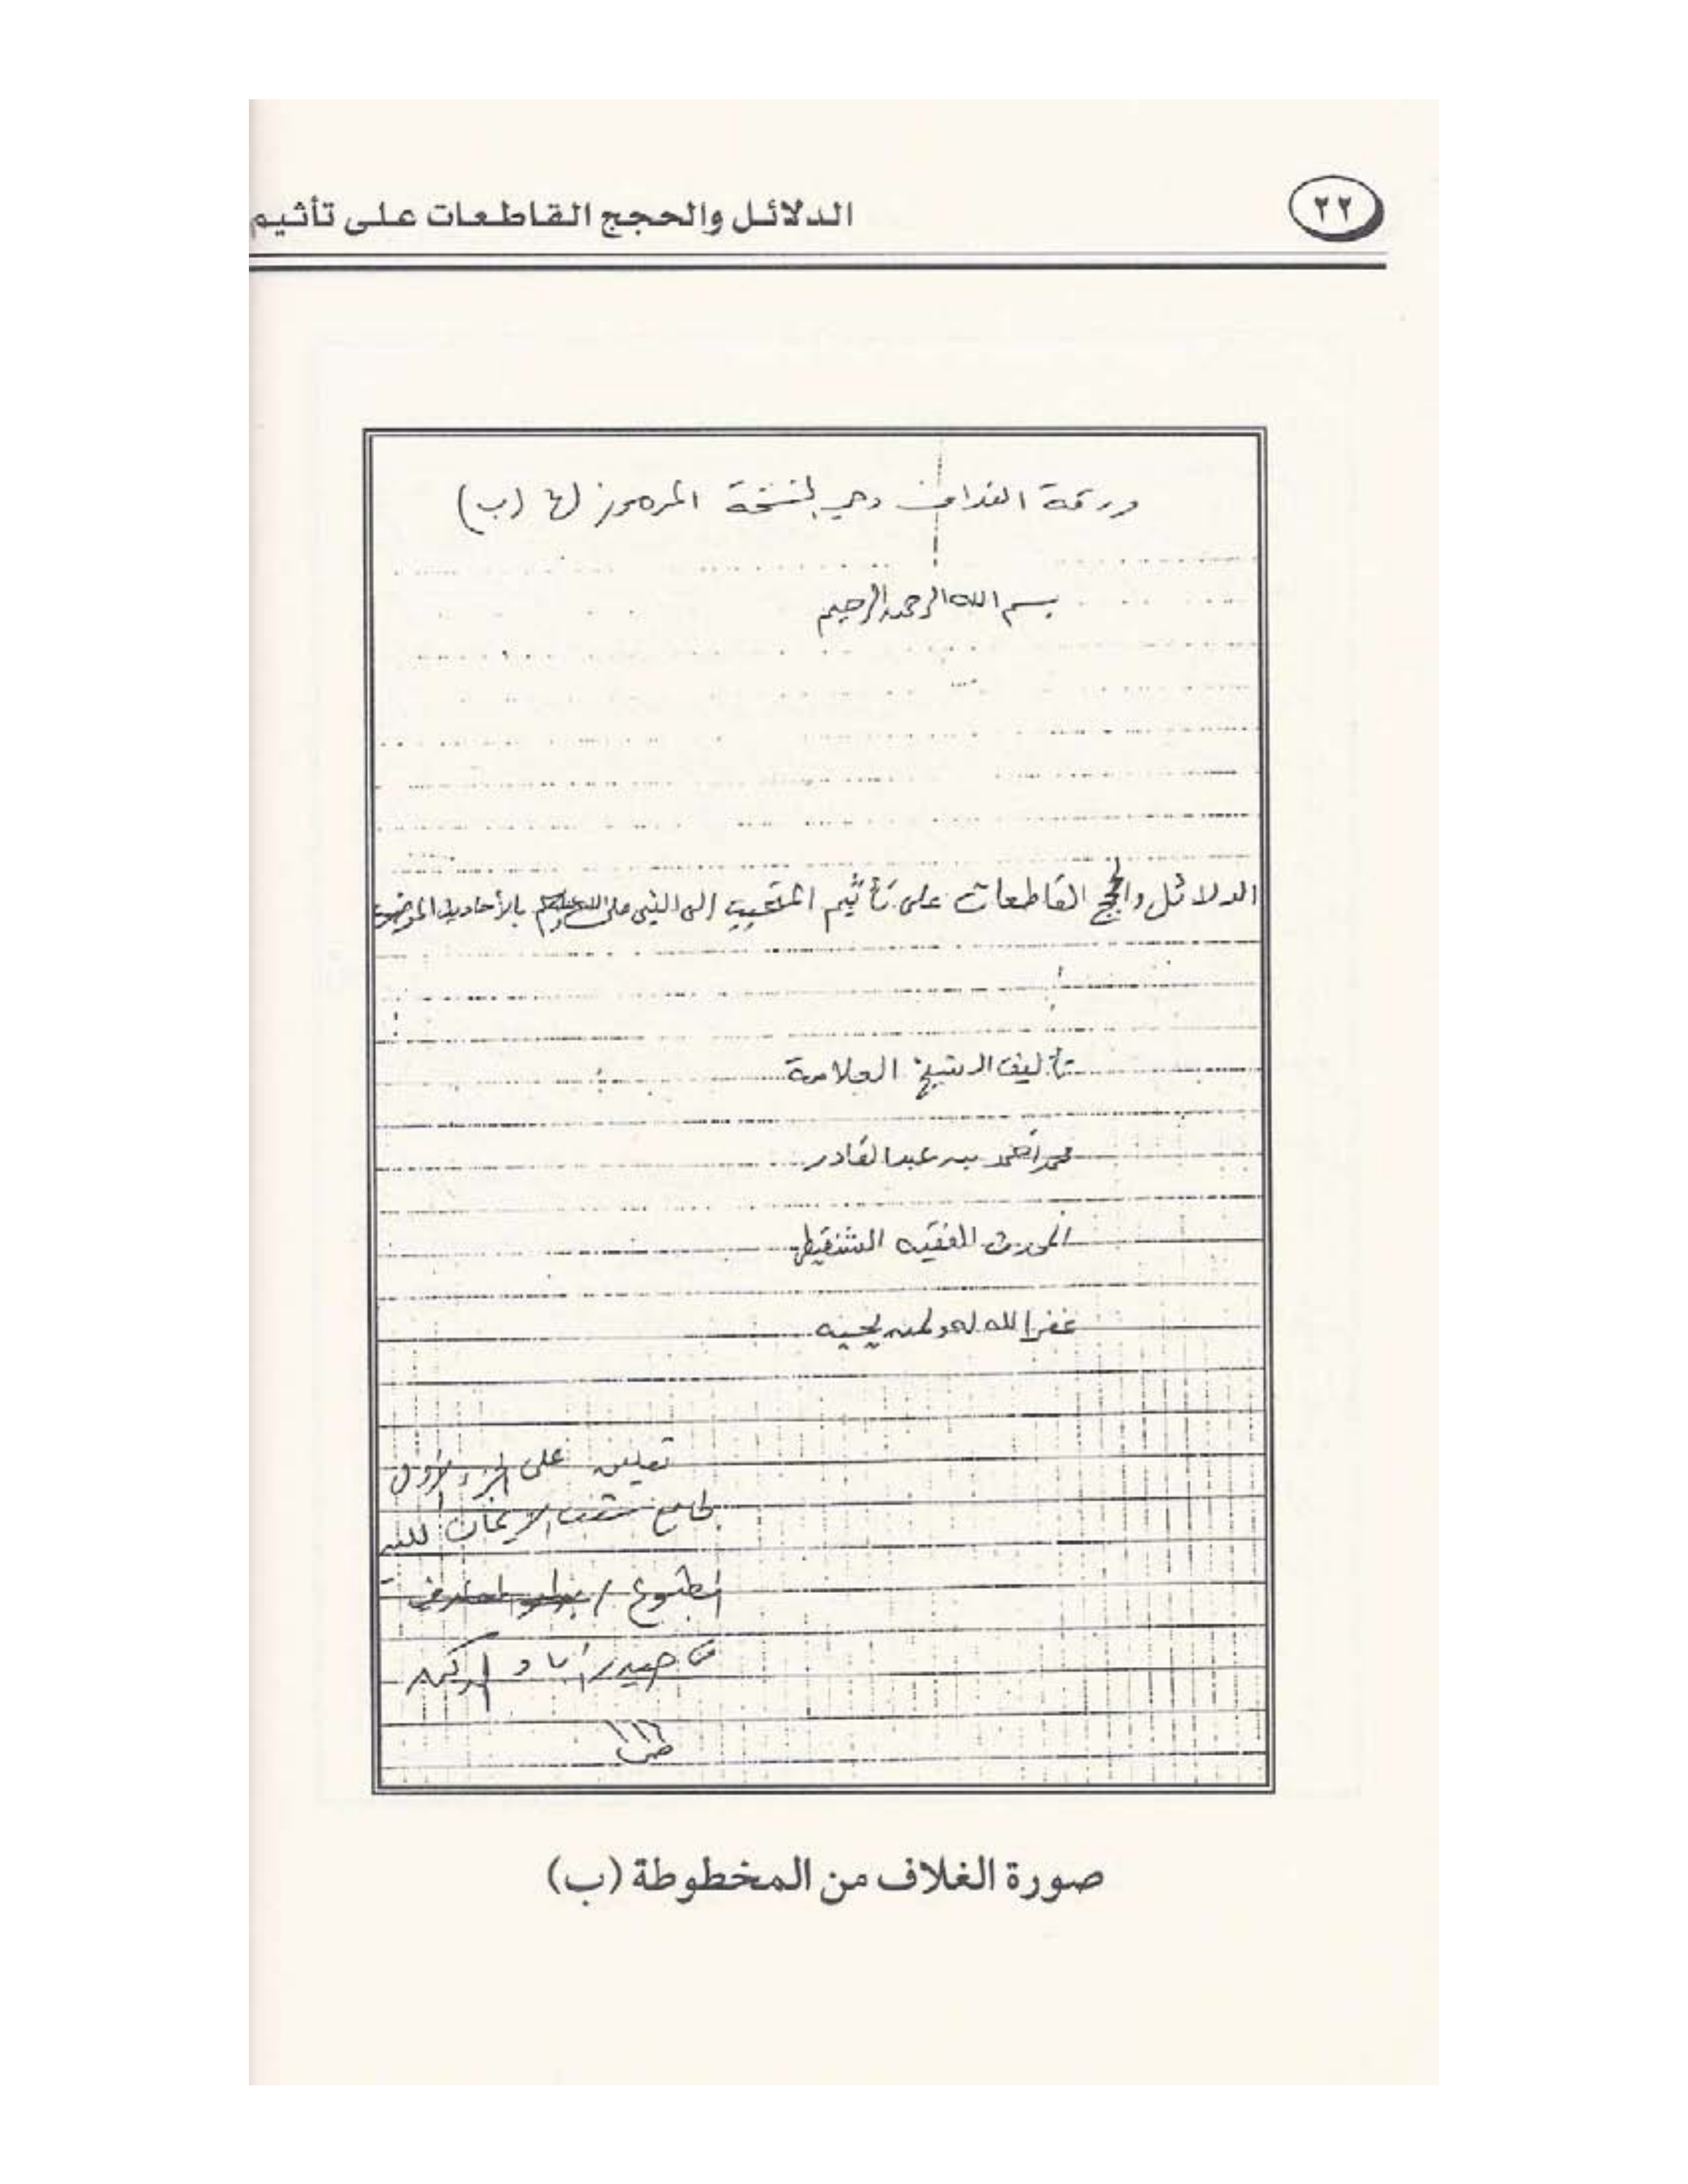 ٢٢
الدلائل والحجج القاطعات على تأثيم
ورقة الغلاف وهي لنسخة المرموز لها (ب)
بسم الله الرحمن الرحيم
الدلائل والحجج القاطعات على تأثيم إلى النبي صلى الله عليه وسلم بالأحاديث الموضوع
تأليف الشيخ العلامة
محمد أحمد بن عبد القادر
المحدث الفقيه الشنقيطي
غفر الله له ولمن يحبه
تعليق على الجزء الأول
لجامع شعب الإيمان
المطبوع /
حيدر آباد الدكن
صورة الغلاف من المخطوطة (ب)